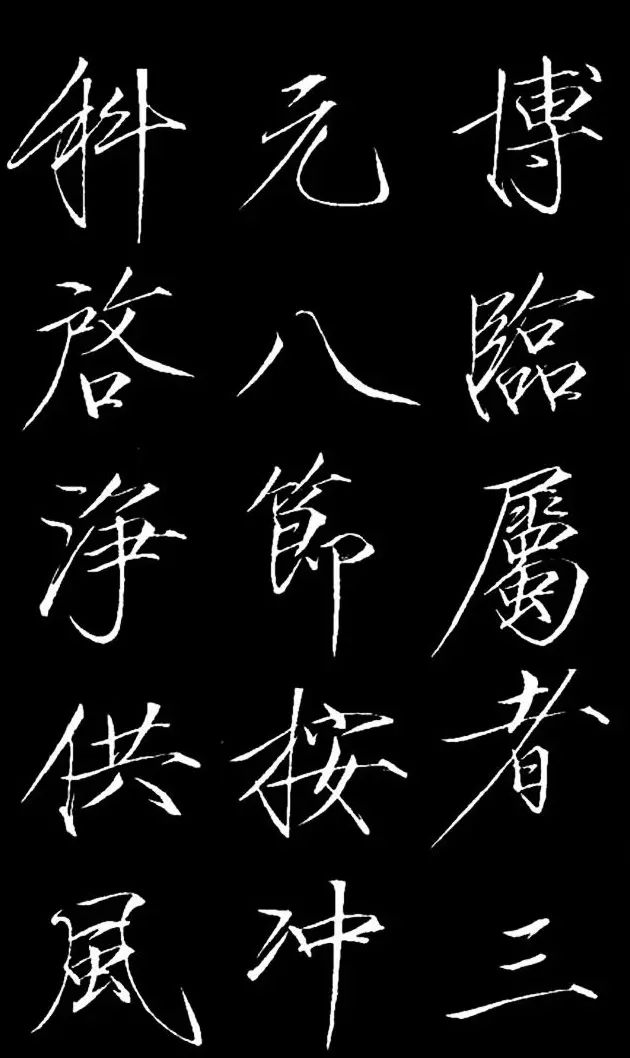 博臨屬者三
元八節按冲
科啓淨供風